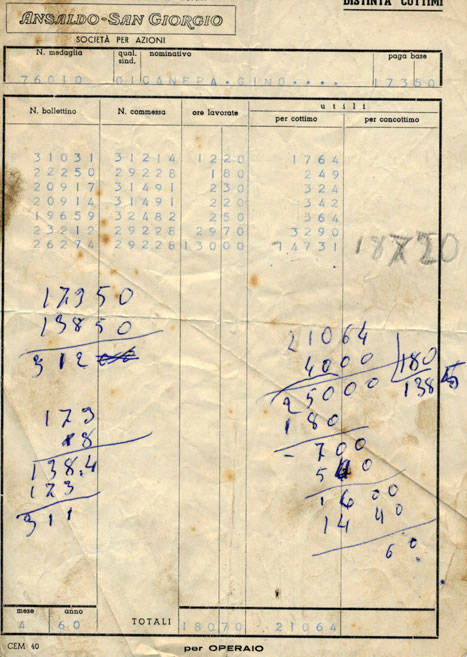 DISTINTA COTTIMI
ANSALDO-SAN GIORGIO
SOCIETÀ PER AZIONI
N. medaglia qual. sind. nominativo paga base
76010 17350
utili
N. bollettino N. commessa ore lavorate per cottimo per concottimo
31031 31214 1220 1764
22250 29228 180 249
20917 31491 230 324
20914 31491 220 342
19659 32482 250 364
23212 29228 2970 3290
26274 29228 13000 14731
18720
17350
13850
312
21064
4000 180
25000 138
180
173
18
- 700
540
138.4
173
1600
1440
311
60
mese anno
4 60 TOTALI 18070 21064
CEM 40 per OPERAIO